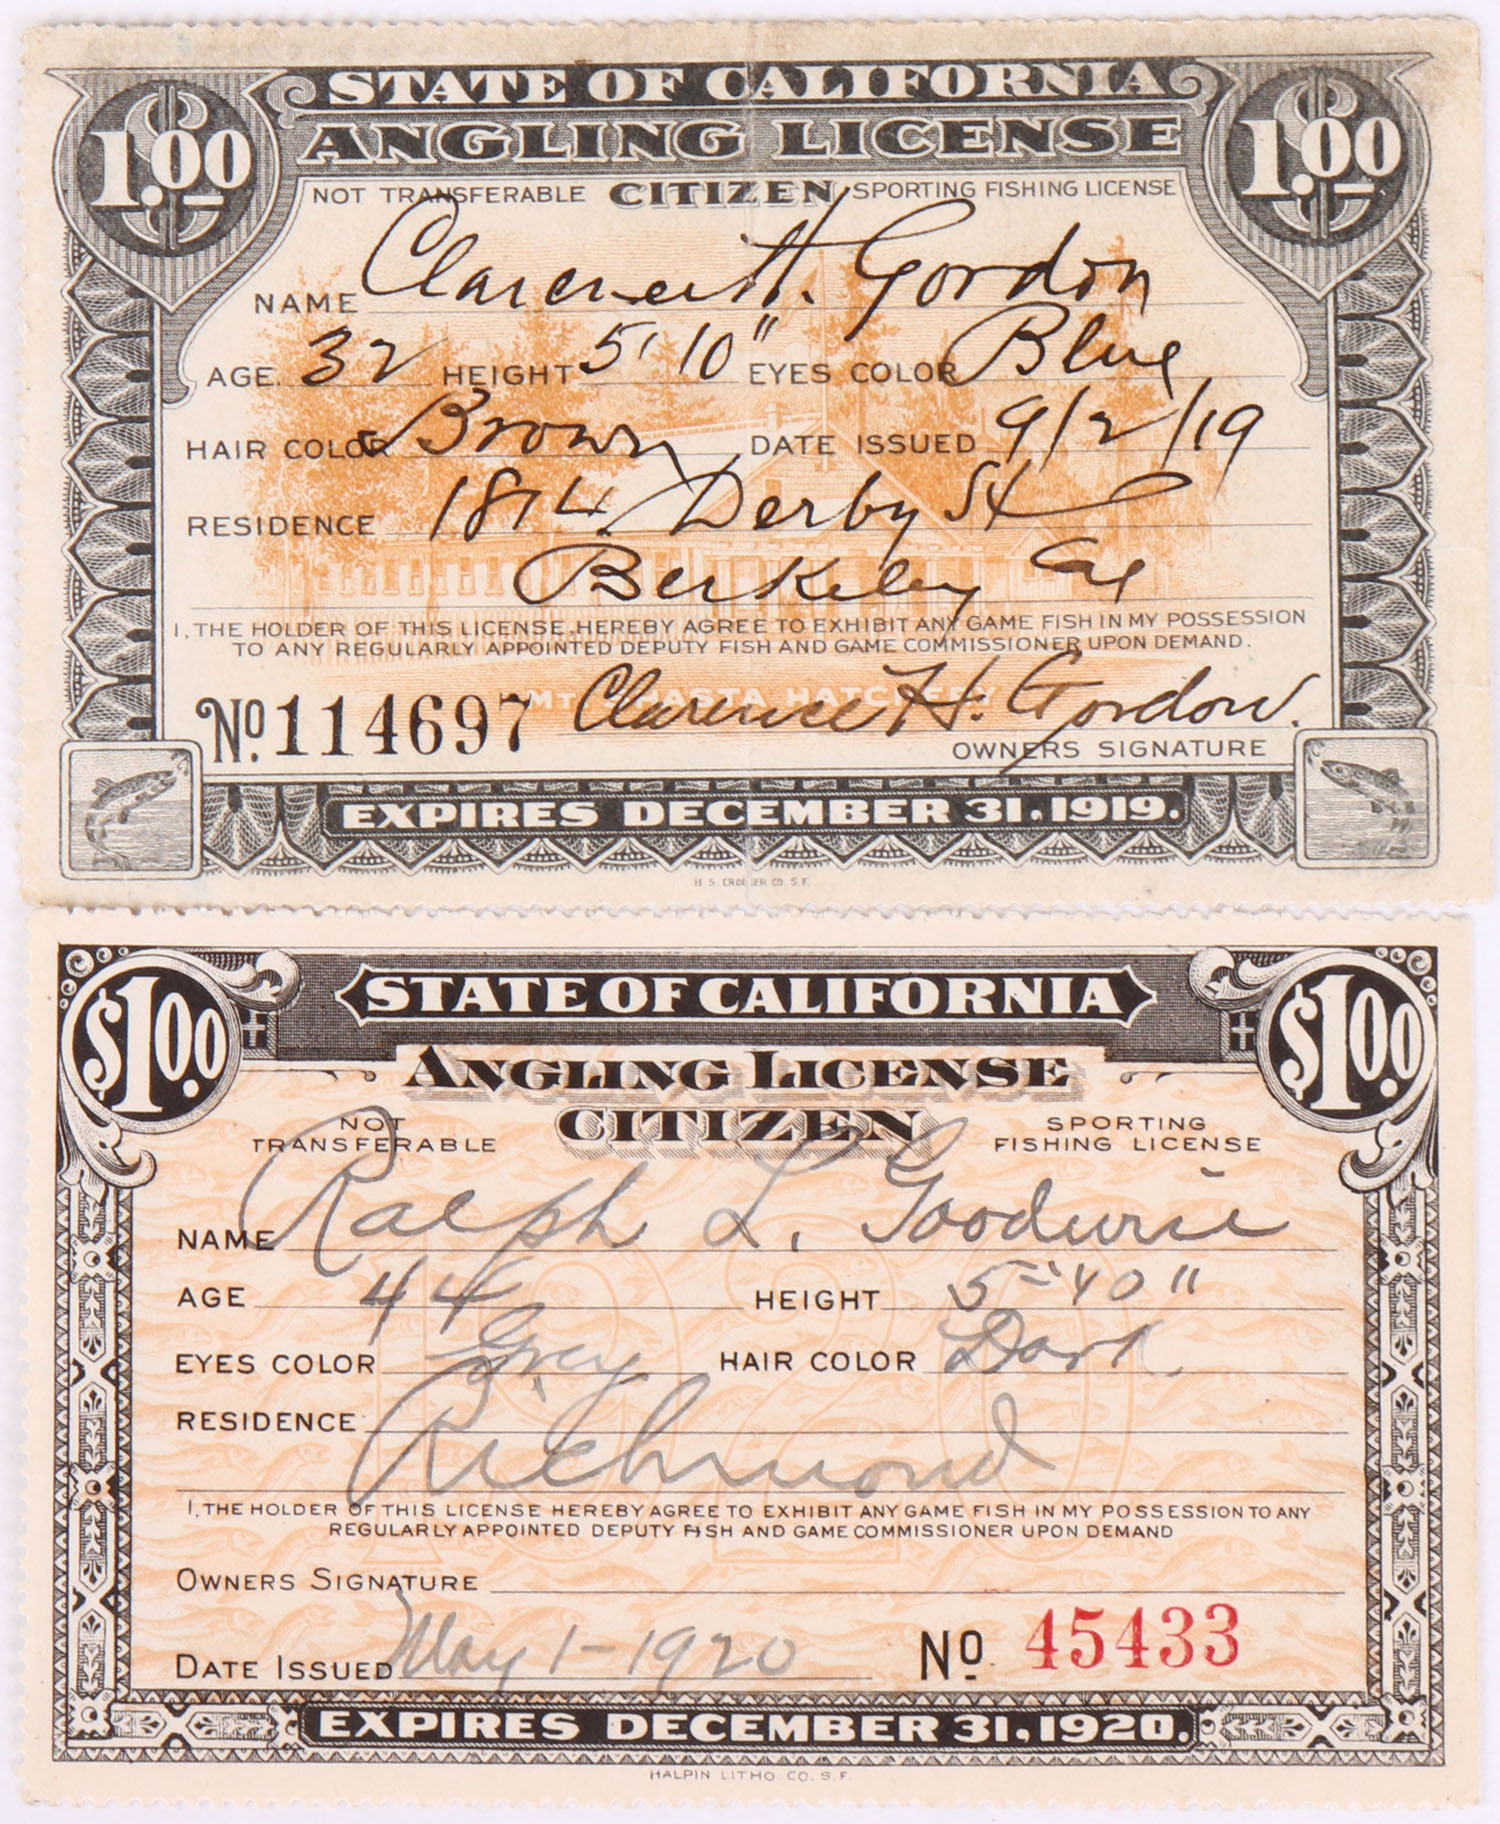 STATE OF CALIFORNIA
1.00 ANGLING LICENSE 1.00
NOT TRANSFERABLE CITIZEN SPORTING FISHING LICENSE
NAME Clarence H. Gordon
AGE. 32 HEIGHT 5' 10" EYES COLOR Blue
HAIR COLOR Brown DATE ISSUED 9/2/19
RESIDENCE 1814 Derby St
Berkeley Cal
I, THE HOLDER OF THIS LICENSE, HEREBY AGREE TO EXHIBIT ANY GAME FISH IN MY POSSESSION
TO ANY REGULARLY APPOINTED DEPUTY FISH AND GAME COMMISSIONER UPON DEMAND.
MT. SHASTA HATCHERY
No. 114697 Clarence H. Gordon.
OWNERS SIGNATURE
EXPIRES DECEMBER 31. 1919.
H. S. CROCKER CO. S. F.
STATE OF CALIFORNIA
$100 ANGLING LICENSE $100
NOT TRANSFERABLE CITIZEN SPORTING FISHING LICENSE
NAME Ralph L. Goodwin
AGE 44 HEIGHT 5-'10"
EYES COLOR Grey HAIR COLOR Dark
RESIDENCE Richmond
1920
I, THE HOLDER OF THIS LICENSE HEREBY AGREE TO EXHIBIT ANY GAME FISH IN MY POSSESSION TO ANY
REGULARLY APPOINTED DEPUTY FISH AND GAME COMMISSIONER UPON DEMAND
OWNERS SIGNATURE
DATE ISSUED May 1-1920 No. 45433
EXPIRES DECEMBER 31, 1920.
HALPIN LITHO. CO. S. F.